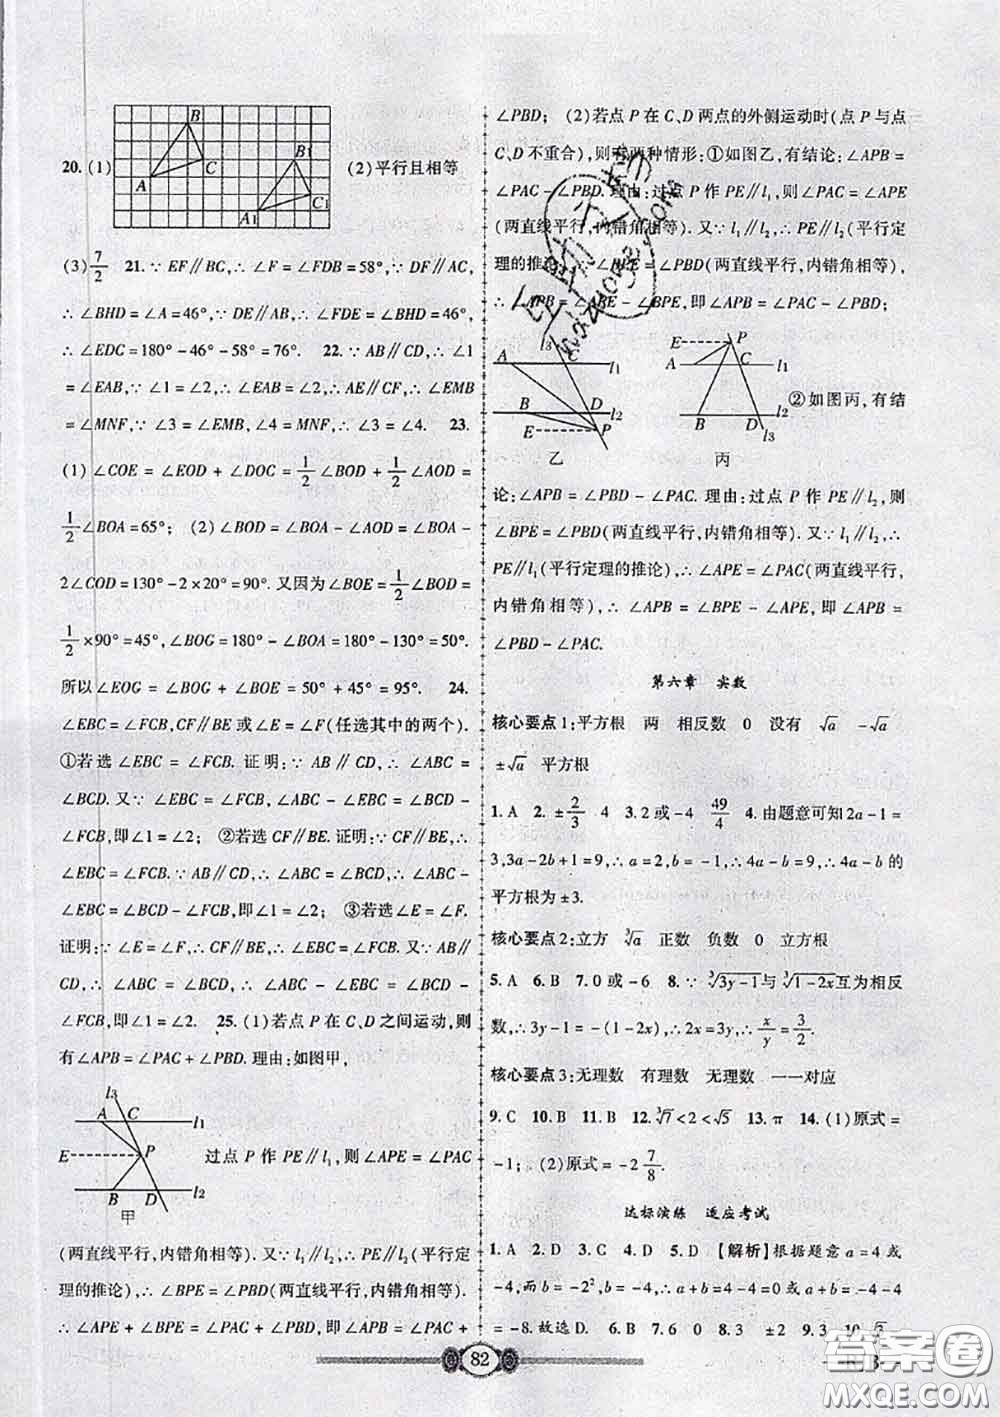 20. (1)
B
A
C
B1
A1
C1
(2)平行且相等
(3)7/2 21.∵ EF∥BC,∴ ∠F = ∠FDB = 58°,∵ DF∥AC,
∴ ∠BHD = ∠A = 46°,∵ DE∥AB,∴ ∠FDE = ∠BHD = 46°,
∴ ∠EDC = 180° - 46° - 58° = 76°. 22.∵ AB∥CD,∴ ∠1
= ∠EAB,∵ ∠1 = ∠2,∴ ∠EAB = ∠2,∴ AE∥CF,∴ ∠EMB
= ∠MNF,∵ ∠3 = ∠EMB,∠4 = ∠MNF,∴ ∠3 = ∠4. 23.
(1) ∠COE = ∠EOD + ∠DOC = 1/2 ∠BOD + 1/2 ∠AOD =
1/2 ∠BOA = 65°; (2) ∠BOD = ∠BOA - ∠AOD = ∠BOA -
2∠COD = 130° - 2 × 20° = 90°. 又因为 ∠BOE = 1/2 ∠BOD =
1/2 × 90° = 45°,∠BOG = 180° - ∠BOA = 180° - 130° = 50°.
所以 ∠EOG = ∠BOG + ∠BOE = 50° + 45° = 95°. 24.
∠EBC = ∠FCB,CF∥BE 或 ∠E = ∠F(任选其中的两个).
①若选 ∠EBC = ∠FCB. 证明:∵ AB∥CD,∴ ∠ABC =
∠BCD. 又∵ ∠EBC = ∠FCB,∴ ∠ABC - ∠EBC = ∠BCD -
∠FCB,即∠1 = ∠2; ②若选 CF∥BE. 证明:∵ CF∥BE,∴
∠EBC = ∠FCB. ∵ AB∥CD,∴ ∠ABC = ∠BCD,∴ ∠ABC -
∠EBC = ∠BCD - ∠FCB,即∠1 = ∠2; ③若选∠E = ∠F.
证明:∵ ∠E = ∠F,∴ CF∥BE,∴ ∠EBC = ∠FCB. 又∵ AB∥
CD,∴ ∠ABC = ∠BCD,∴ ∠ABC - ∠EBC = ∠BCD -
∠FCB,即∠1 = ∠2. 25. (1)若点 P 在 C、D 之间运动,则
有 ∠APB = ∠PAC + ∠PBD. 理由:如图甲,
l3
A
C
l1
E
P
B
D
l2
甲
过点 P 作 PE∥l1,则 ∠APE = ∠PAC
(两直线平行,内错角相等). 又∵ l1∥l2,∴ PE∥l2(平行定
理的推论),∴ ∠BPE = ∠PBD(两直线平行,内错角相等).
∴ ∠APE + ∠BPE = ∠PAC + ∠PBD,即 ∠APB = ∠PAC +
∠PBD; (2)若点 P 在 C、D 两点的外侧运动时(点 P 与点
C、D 不重合),则有两种情形:①如图乙,有结论:∠APB =
∠PAC - ∠PBD. 理由:过点 P 作 PE∥l1,则 ∠PAC = ∠APE
(两直线平行,内错角相等). 又∵ l1∥l2,∴ PE∥l2(平行定
理的推论),∴ ∠BPE = ∠PBD(两直线平行,内错角相等),
∴ ∠APB = ∠APE - ∠BPE,即 ∠APB = ∠PAC - ∠PBD;
l3
A
C
l1
B
D
l2
E
P
乙
E
P
A
l1
B
D
l2
l3
丙
②如图丙,有结
论:∠APB = ∠PBD - ∠PAC. 理由:过点 P 作 PE∥l2,则
∠BPE = ∠PBD(两直线平行,内错角相等). 又∵ l1∥l2,∴
PE∥l1(平行定理的推论),∴ ∠APE = ∠PAC(两直线平行,
内错角相等),∴ ∠APB = ∠BPE - ∠APE,即 ∠APB =
∠PBD - ∠PAC.
第六章 实数
核心要点1:平方根 两 相反数 0 没有 √a -√a
±√a 平方根
1. A 2. ±2/3 4 3. 2 或 -4 49/4 4. 由题意可知 2a - 1 =
3,3a - 2b + 1 = 9,∴ a = 2,b = -1,∴ 4a - b = 9,∴ 4a - b 的
平方根为 ±3.
核心要点2:立方 ∛a 正数 负数 0 立方根
5. A 6. B 7. 0 或 -6 8.∵ ∛(3y-1) 与 ∛(1-2x) 互为相反
数,∴ 3y - 1 = -(1 - 2x),∴ 2x = 3y,∴ x/y = 3/2.
核心要点3:无理数 有理数 无理数 一一对应
9. C 10. B 11. B 12. ∛7 < 2 < √5 13. π 14. (1)原式 =
-1; (2)原式 = -2 7/8.
达标演练 适应考试
1. A 2. D 3. C 4. D 5. D 【解析】根据题意 a = 4 或
-4,而 b = -2²,∴ b = -4,∴ a + b = 4 - 4 = 0 或 a + b = -4 - 4
= -8. 故选 D. 6. B 7. 6 0 8. 3 ±2 9. 3 10. √2
82
答案圈
MXQE.COM